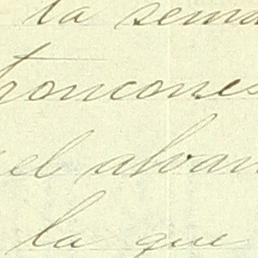 la sema
troncones
el alvar
la que